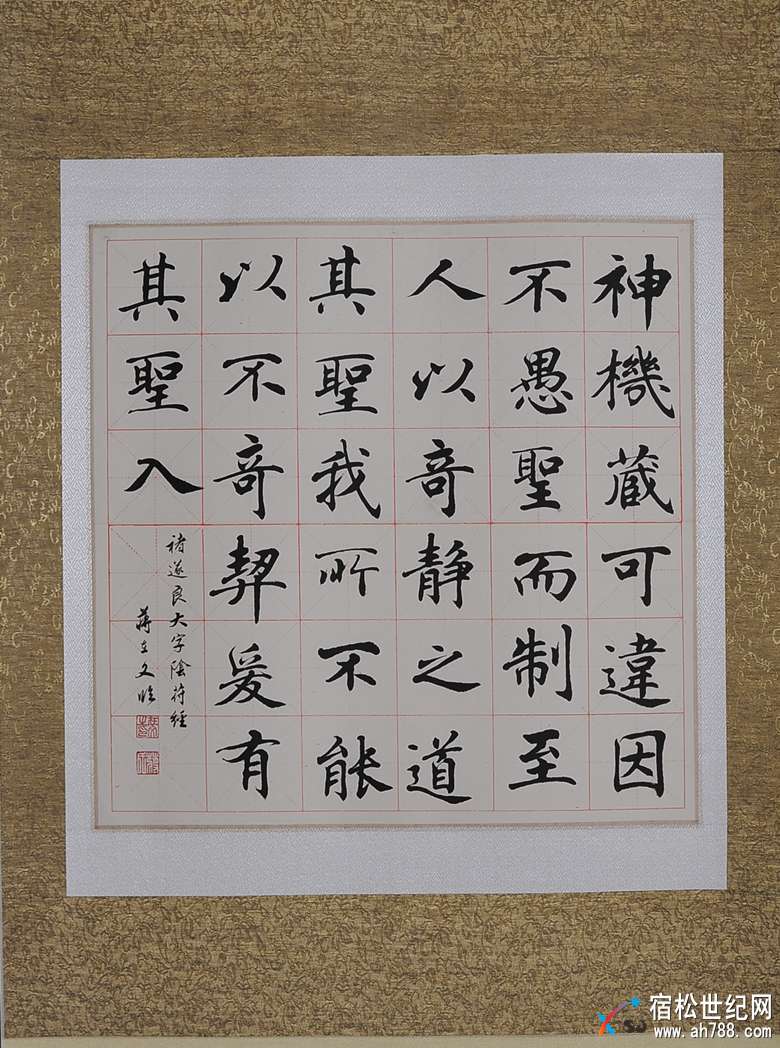 神機藏可違因
不愚聖而制至
人以奇静之道
其聖我所不能
以不奇契爰有
其聖入
褚遂良大字陰符經
蔣立文臨
宿松世纪网
www.ah788.com